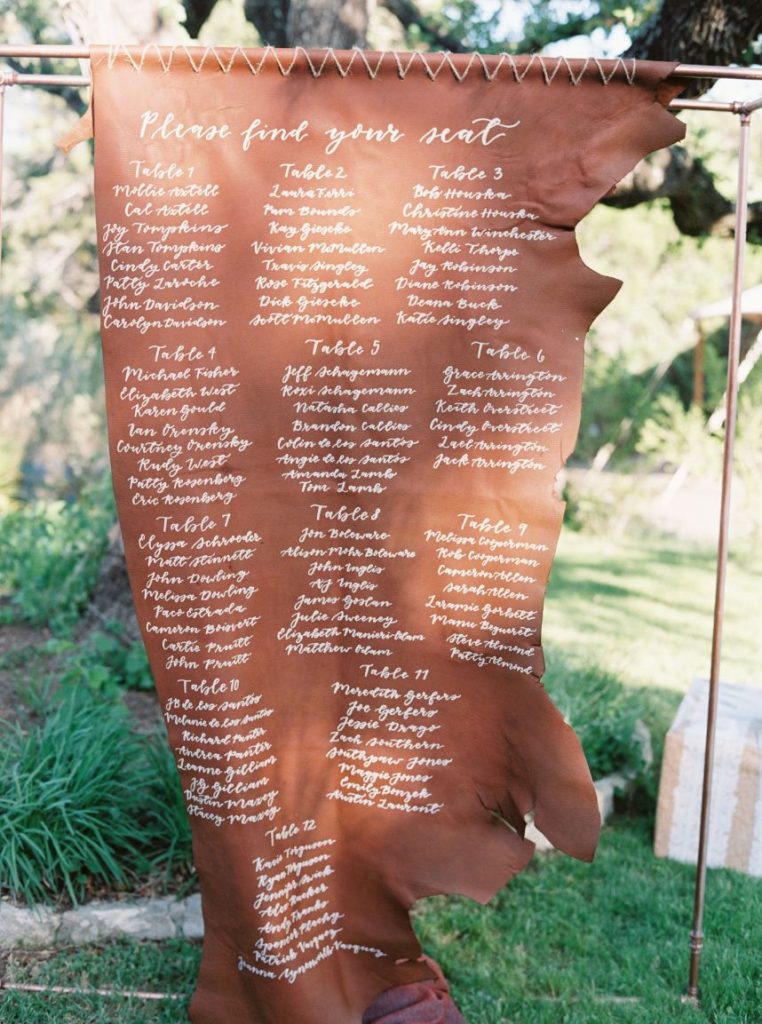 Please find your seat
Table 1
Mollie Axtell
Cal Axtell
Joy Tompkins
Stan Tompkins
Cindy Carter
Patty Laroche
John Davidson
Carolyn Davidson
Table 2
Laura Ferri
Pam Bounds
Kay Gieseke
Vivian McMullen
Travis Singley
Rose Fitzgerald
Dick Gieseke
Scott McMullen
Table 3
Bob Houska
Christine Houska
Mary Ann Winchester
Kelli Thorpe
Jay Robinson
Diane Robinson
Deana Buck
Katie Singley
Table 4
Michael Fisher
Elizabeth West
Karen Gould
Ian Orensky
Courtney Orensky
Rudy West
Patty Rosenberg
Eric Rosenberg
Table 5
Jeff Schagemann
Roxi Schagemann
Natasha Callies
Brandon Callies
Colin de los Santos
Angie de los Santos
Amanda Lamb
Tom Lamb
Table 6
Grace Arrington
Zach Arrington
Keith Overstreet
Cindy Overstreet
Lael Arrington
Jack Arrington
Table 7
Elyssa Schroeder
Matt Stinnett
John Dowling
Melissa Dowling
Paco Estrada
Cameron Boisvert
Cartie Pruitt
John Pruitt
Table 8
Jon Boleware
Alison Mohr Boleware
John Inglis
AJ Inglis
James Goslan
Julie Sweeney
Elizabeth Manieri Odam
Matthew Odam
Table 9
Melissa Cooperman
Rob Cooperman
Cameron Allen
Sarah Allen
Laramie Gorbett
Manu Beguerit
Steve Almond
Patty Almond
Table 10
JB de los Santos
Melanie de los Santos
Richard Panter
Andrea Panter
Leanne Gilliam
JG Gilliam
Dustin Maxey
Stacey Maxey
Table 11
Meredith Gerfers
Joe Gerfers
Jessie Drago
Zach Southern
Southpaw Jones
Maggie Jones
Emily Bonzek
Austin Laurent
Table 12
Kacie Ferguson
Ryan Ferguson
Jennifer Swick
Alex Rucker
Andy Franks
Spencer Plachy
Patrick Vasquez
Joanna Vasquez